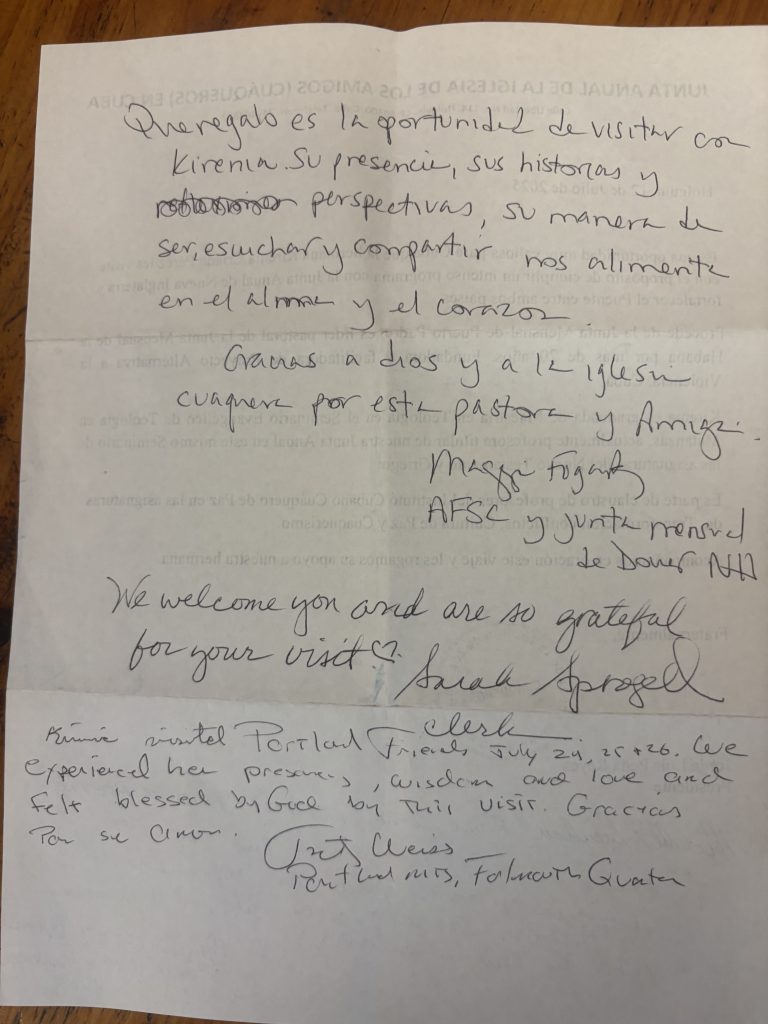 Que regalo es la oportunidad de visitar con
Kirenia. Su presencia, sus historias y
perspectivas, su manera de
ser, escuchar y compartir nos alimenta
en el alma y el corazon.
Gracias a dios y a la iglesia
cuaquera por esta pastora y Amiga.
Maggi Fogarty
AFSC y junta mensual
de Dover NH
We welcome you and are so grateful
for your visit! ♡ Sarah Sprogell
clerk
visited Portland Friends July 24, 25 + 26. We
experienced her presence, wisdom and love and
felt blessed by God by this visit. Gracias
Por su amor.
Weiss
Portland mtg, Falmouth Quarter